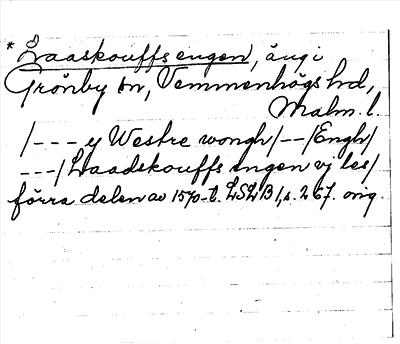 * Laaskouffs engen, äng i
Grönby sn, Vemmenhögs hd,
Malm. l.
/---y Westre wongh/--/Engh/
---/Laadskouffs engen vj les/
förra delen av 1570-t. LSLB 1, s. 267. orig.